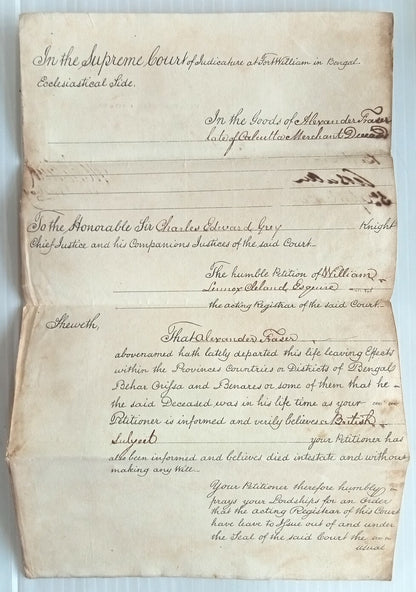 In the Supreme Court of Judicature at Fort William in Bengal
Ecclesiastical Side.
In the Goods of Alexander Fraser
late of Calcutta Merchant Deceased
To the Honorable Sir Charles Edward Grey Knight
Chief Justice and his Companions Justices of the said Court
The humble Petition of William
Lennox Cleland Esquire
the acting Registrar of the said Court
Sheweth,
That Alexander Fraser
abovenamed hath lately departed this life leaving Effects
within the Provinces Countries or Districts of Bengal
Behar Orissa and Benares or some of them that he
the said Deceased was in his life time as your
Petitioner is informed and verily believes a British
Subject your Petitioner has
also been informed and believes died intestate and without
making any Will.
Your Petitioner therefore humbly
prays your Lordships for an Order
that the acting Registrar of this Court
have leave to Issue out of and under
the Seal of the said Court the
usual